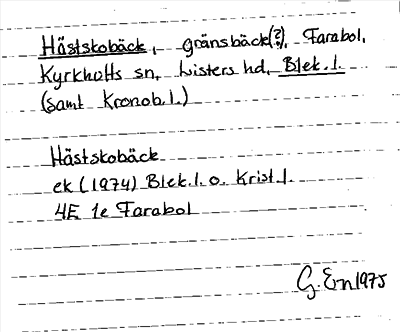 Hästskobäck, gränsbäck(?), Farabol,
Kyrkhults sn, Listers hd, Blek. l.
(samt Kronob. l.)
Hästskobäck
ek (1974) Blek. l. o. Krist l.
4E 1e Farabol
G. En 1975